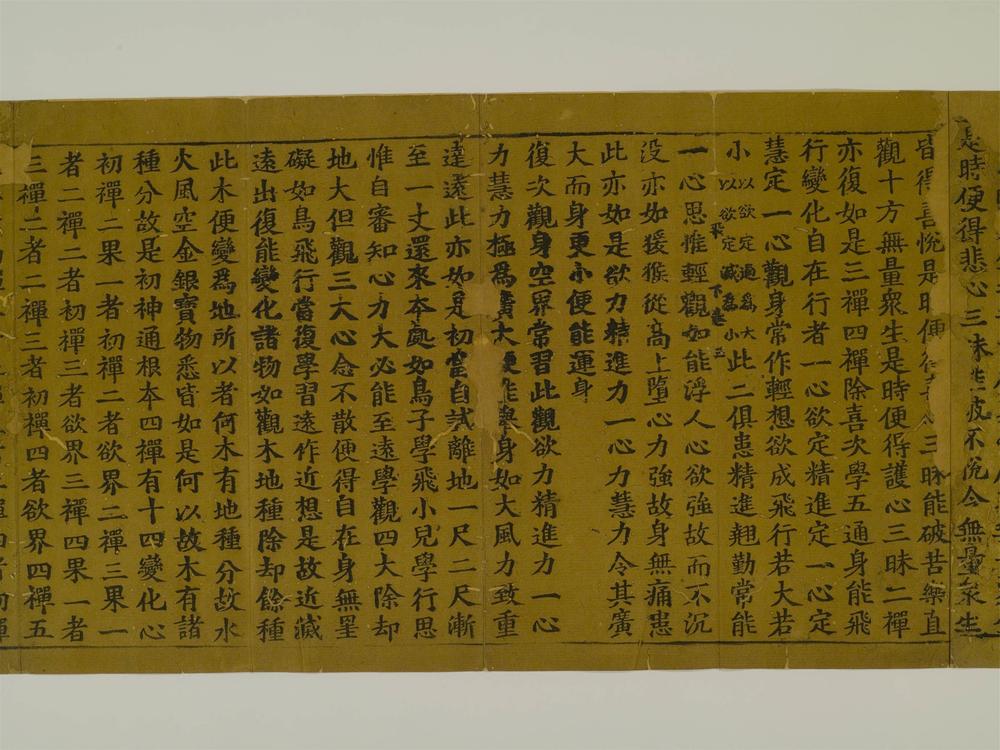 是時便得悲心三昧悲破不悅令無量眾生
皆得喜悅是時便得喜心三昧能破苦樂直
觀十方無量眾生是時便得護心三昧二禪
亦復如是三禪四禪除喜次學五通身能飛
行變化自在行者一心欲定精進定一心定
慧定一心觀身常作輕想欲成飛行若大若
小以欲定過爲大以欲定減爲小此二俱患精進翹勤常能
下卷 五
一心思惟輕觀如能浮人心欲強故而不沉
没亦如猨猴從高上墮心力強故身無痛患
此亦如是欲力精進力一心力慧力令其廣
大而身更小便能運身
復次觀身空界常習此觀欲力精進力一心
力慧力極爲廣大便能舉身如大風力致重
達遠此亦如是初當自試離地一尺二尺漸
至一丈還來本處如鳥子學飛小兒學行思
惟自審知心力大必能至遠學觀四大除却
地大但觀三大心念不散便得自在身無罣
礙如鳥飛行當復學習遠作近想是故近滅
遠出復能變化諸物如觀木地種除却餘種
此木便變爲地所以者何木有地種分故水
火風空金銀寶物悉皆如是何以故木有諸
種分故是初神通根本四禪有十四變化心
初禪二果一者初禪二者欲界二禪三果一
者二禪二者初禪三者欲界三禪四果一者
三禪二者二禪三者初禪四者欲界四禪五